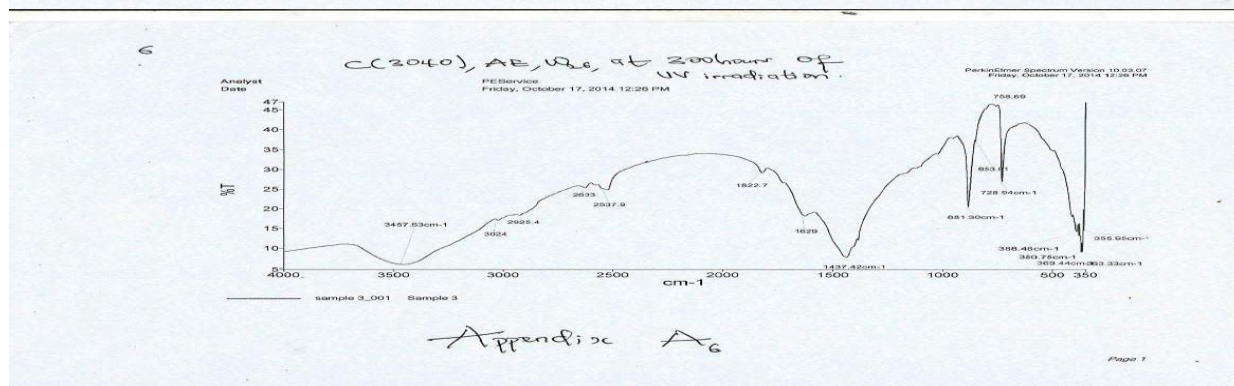 6
C(2040), AE, at 200hours of
UV irradiation.
Analyst
Date
PEService
Friday, October 17, 2014 12:26 PM
PerkinElmer Spectrum Version 10.03.07
Friday, October 17, 2014 12:26 PM
47
45
40
35
30
25
20
15
10
5
%T
3457.53cm-1
3024
2925.4
2633
2537.9
1822.7
1629
1437.42cm-1
881.30cm-1
853.61
758.69
728.94cm-1
388.46cm-1
380.75cm-1
369.44cm-1
363.33cm-1
355.95cm-1
4000
3500
3000
2500
2000
1500
1000
500
350
cm-1
sample 3_001 Sample 3
Appendix A6
Page 1